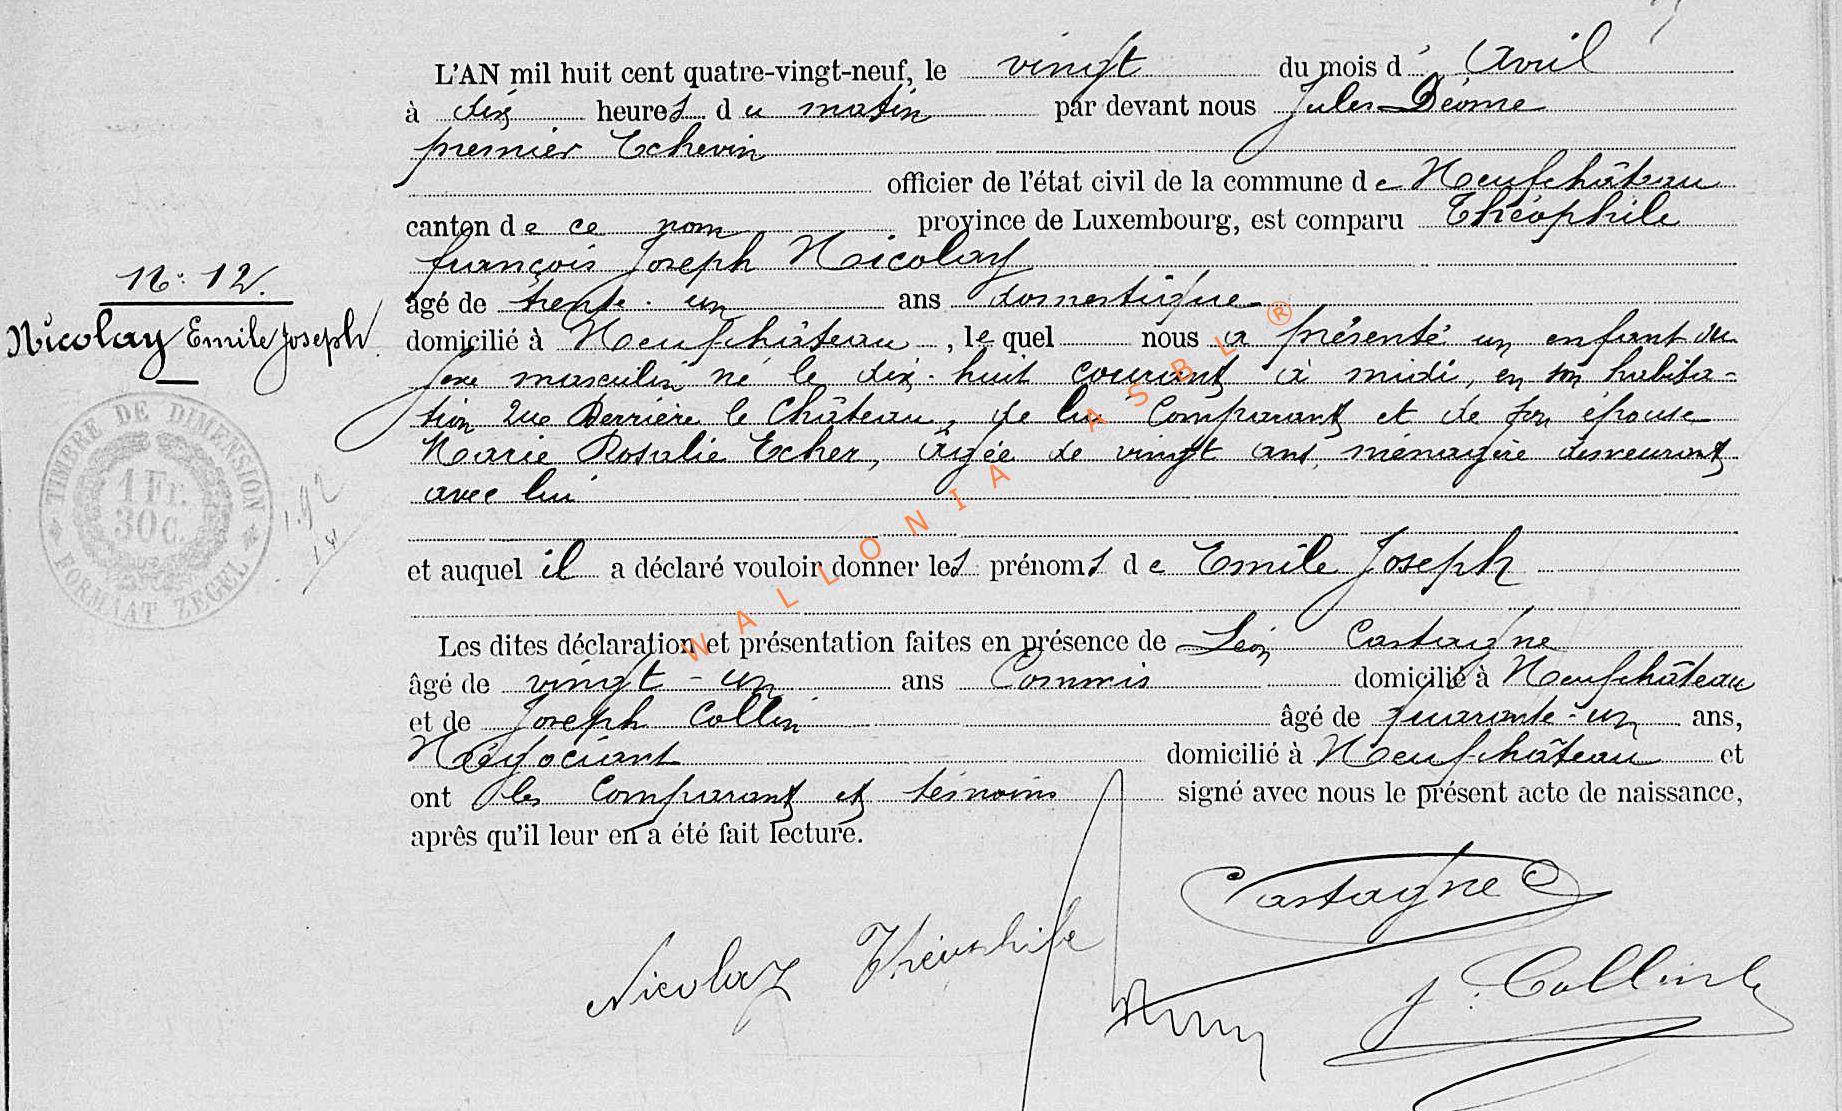 L'AN mil huit cent quatre-vingt-neuf, le vingt du mois d' Avril
à dix heures du matin par devant nous Jules Déome
premier Echevin
officier de l'état civil de la commune de Neufchâteau
canton de ce nom province de Luxembourg, est comparu Théophile
françois Joseph Nicolay
âgé de trente-un ans domestique
domicilié à Neufchâteau, lequel nous a présenté un enfant du
sexe masculin né le dix-huit courant à midi, en son habita-
tion rue Derrière le Château, de lui Comparant et de son épouse
Marie Rosalie Echer, âgée de vingt ans, ménagère demeurant
avec lui
et auquel il a déclaré vouloir donner les prénoms de Emile Joseph
Les dites déclaration et présentation faites en présence de Léon Castaigne
âgé de vingt-un ans Commis domicilié à Neufchâteau
et de Joseph Collin âgé de quarante-un ans,
Négociant domicilié à Neufchâteau et
ont les Comparant et témoins signé avec nous le présent acte de naissance,
après qu'il leur en a été fait lecture.
N: 12.
Nicolay Emile Joseph
TIMBRE DE DIMENSION
1 Fr.
30 c.
FORMAAT ZEGEL
WALLONIA ASBL ®
Castagne
Nicolay Théophile
J. Collin